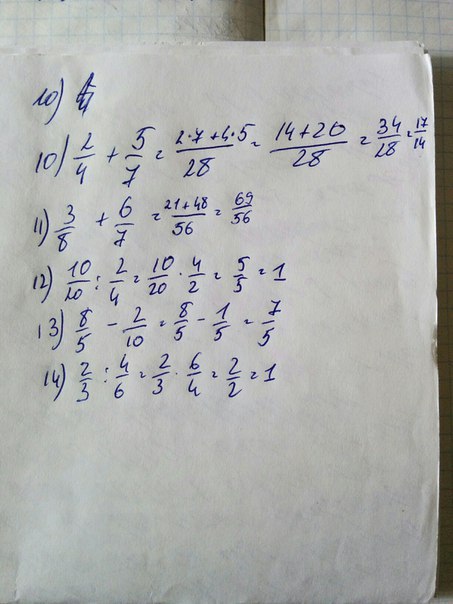 10)
10) 2/4 + 5/7 = 2·7+4·5/28 = 14+20/28 = 34/28 = 17/14
11) 3/8 + 6/7 = 21+48/56 = 69/56
12) 10/20 : 2/4 = 10/20 · 4/2 = 5/5 = 1
13) 8/5 - 2/10 = 8/5 - 1/5 = 7/5
14) 2/3 : 4/6 = 2/3 · 6/4 = 2/2 = 1